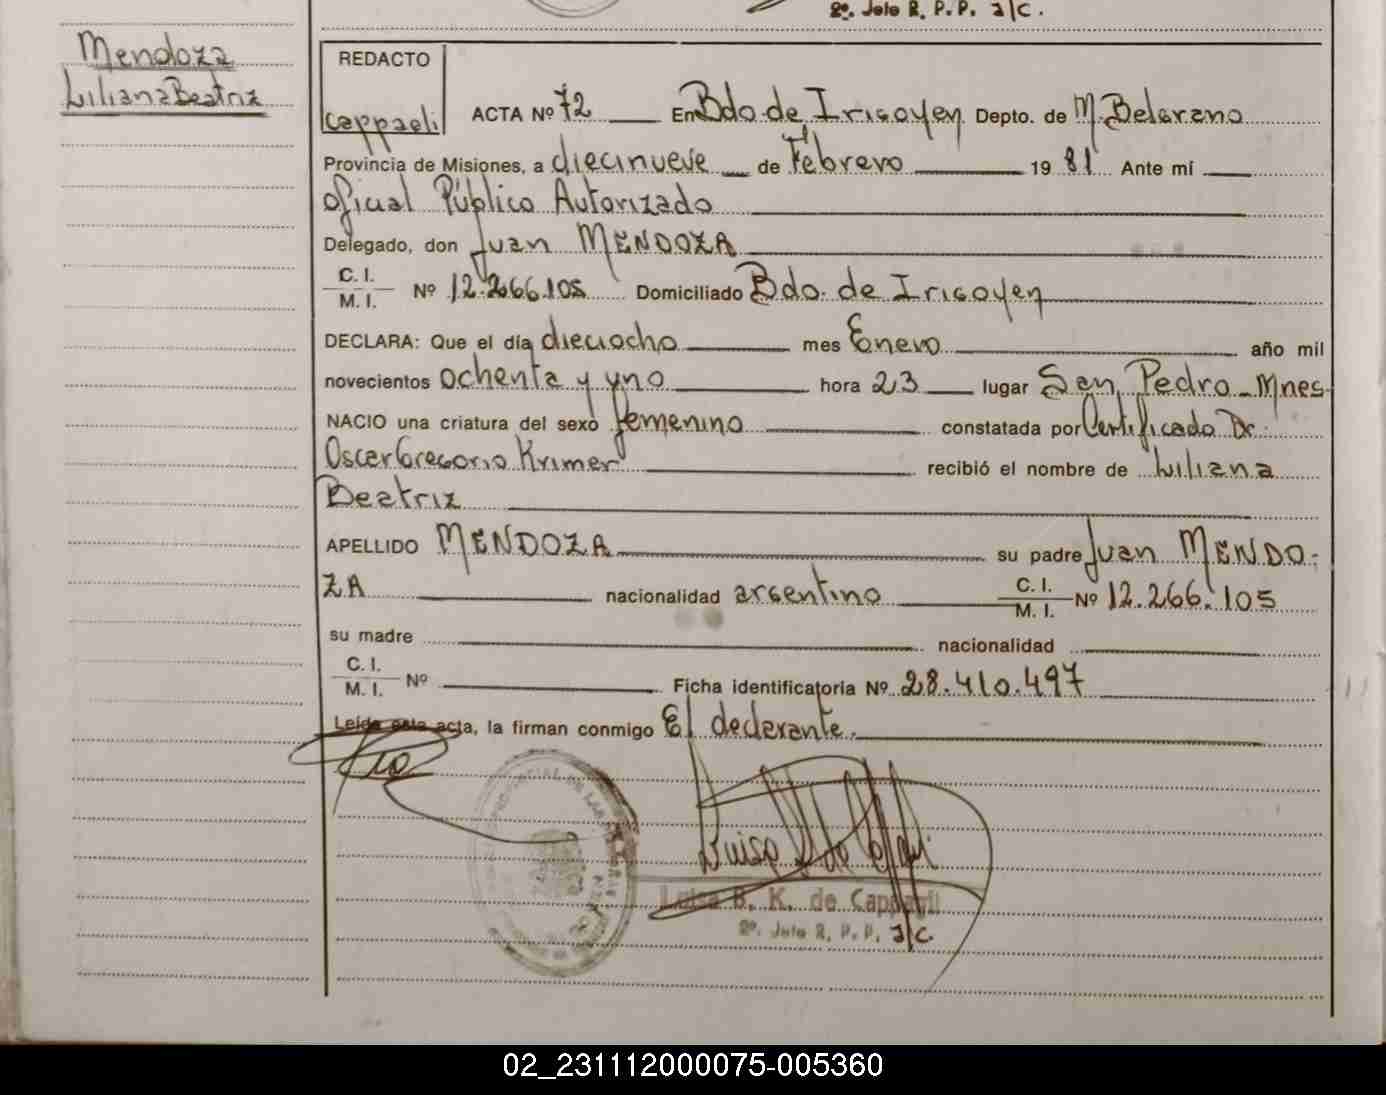 2º. Jefe R. P. P. a/c.
Mendoza
Liliana Beatriz
REDACTO
Cappaeli
ACTA Nº 72 En Bdo. de Irigoyen Depto. de M. Belgrano
Provincia de Misiones, a diecinueve de Febrero 19 81 Ante mí
Oficial Público Autorizado
Delegado, don Juan MENDOZA
C. I.
M. I. Nº 12.266.105 Domiciliado Bdo. de Irigoyen
DECLARA: Que el día dieciocho mes Enero año mil
novecientos ochenta y uno hora 23 lugar San Pedro Mnes
NACIO una criatura del sexo femenino constatada por Certificado Dr.
Oscar Gregorio Krimer recibió el nombre de Liliana
Beatriz
APELLIDO MENDOZA su padre Juan MENDO-
ZA nacionalidad argentino C. I.
M. I. Nº 12.266.105
su madre nacionalidad
C. I.
M. I. Nº Ficha identificatoria Nº 28.410.497
Leída esta acta, la firman conmigo El declarante.
Luisa B. K. de Cappaeli
2º. Jefe R. P. P. a/c.
02_231112000075-005360